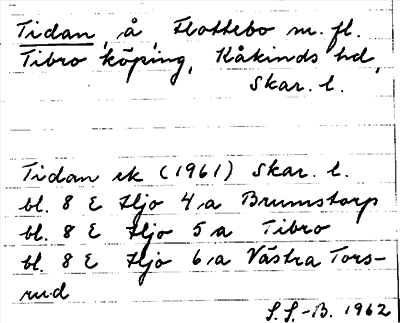 Tidan, å, Flottebo m. fl.
Tibro köping, Kåkinds hd,
Skar. l.
Tidan ek (1961) Skar. l.
bl. 8 E Hjo 4a Brumstorp
bl. 8 E Hjo 5a Tibro
bl. 8 E Hjo 6a Västra Tors-
rud
S.S.-B. 1962